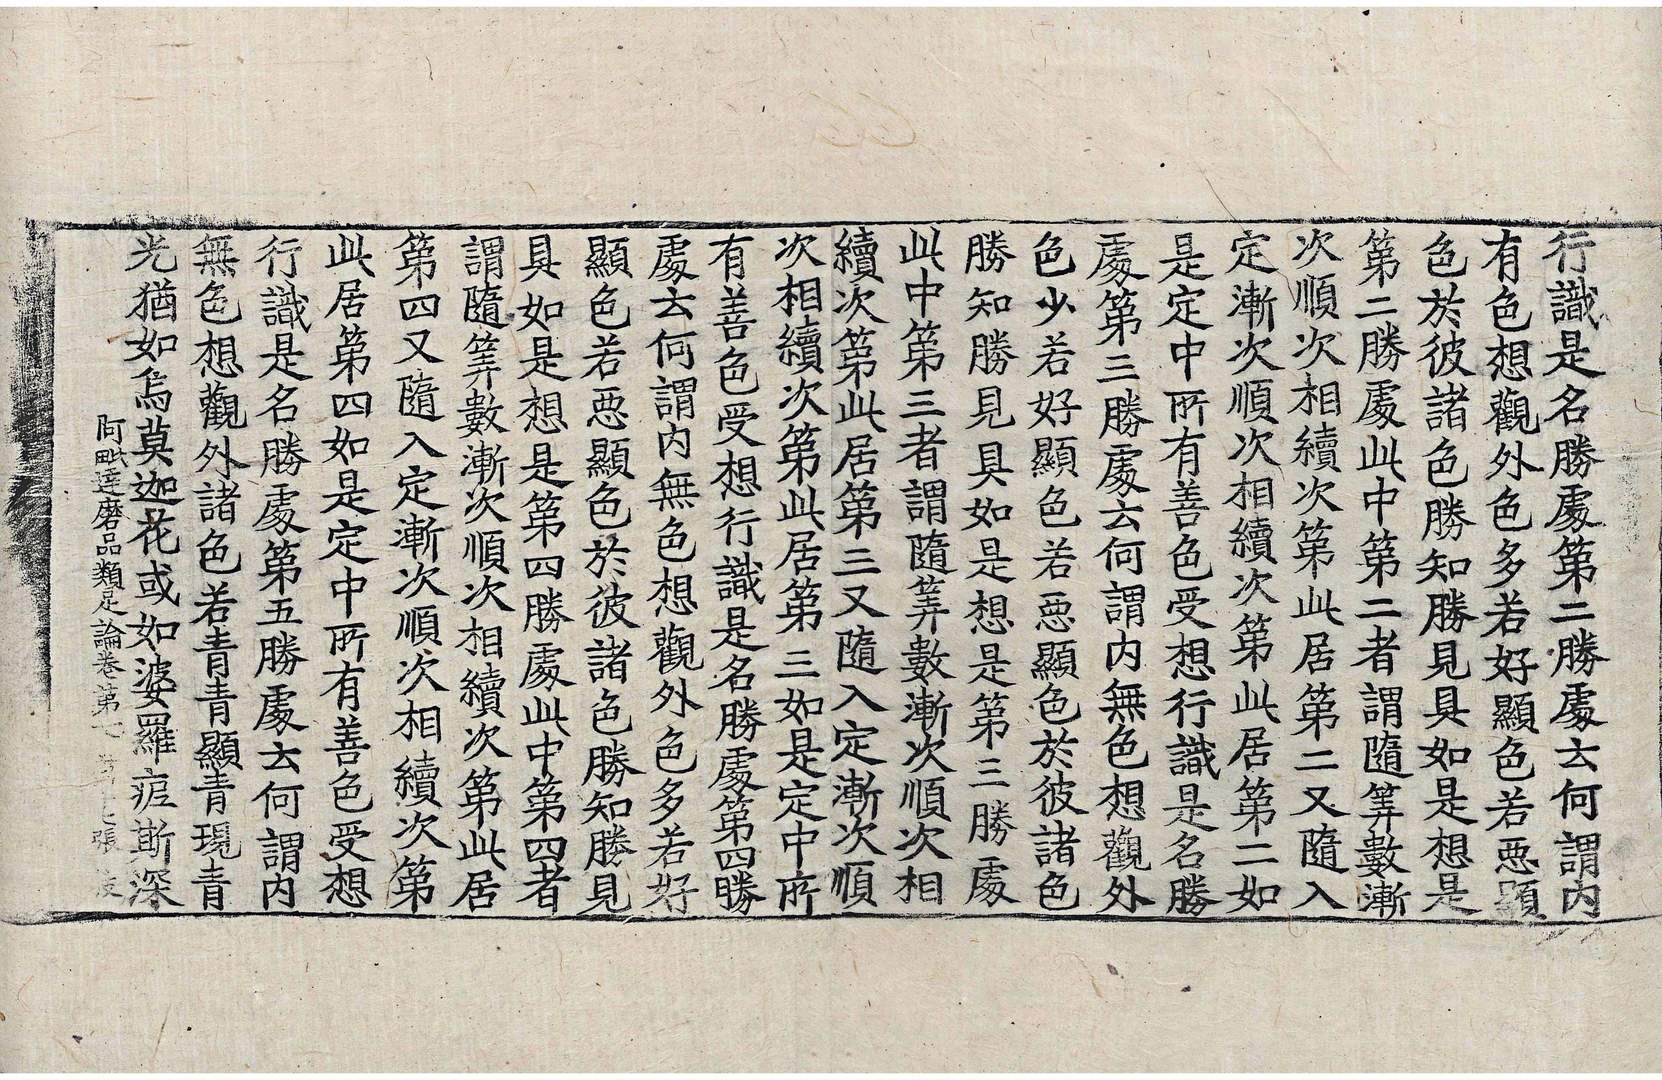 行識是名勝處第二勝處云何謂內
有色想觀外色多若好顯色若惡顯
色於彼諸色勝知勝見具如是想是
第二勝處此中第二者謂隨筭數漸
次順次相續次第此居第二又隨入
定漸次順次相續次第此居第二如
是定中所有善色受想行識是名勝
處第三勝處云何謂內無色想觀外
色少若好顯色若惡顯色於彼諸色
勝知勝見具如是想是第三勝處
此中第三者謂隨筭數漸次順次相
續次第此居第三又隨入定漸次順
次相續次第此居第三如是定中所
有善色受想行識是名勝處第四勝
處云何謂內無色想觀外色多若好
顯色若惡顯色於彼諸色勝知勝見
具如是想是第四勝處此中第四者
謂隨筭數漸次順次相續次第此居
第四又隨入定漸次順次相續次第
此居第四如是定中所有善色受想
行識是名勝處第五勝處云何謂內
無色想觀外諸色若青青顯青現青
光猶如烏莫迦花或如婆羅痆斯深
阿毗達磨品類足論卷第七 第 七張